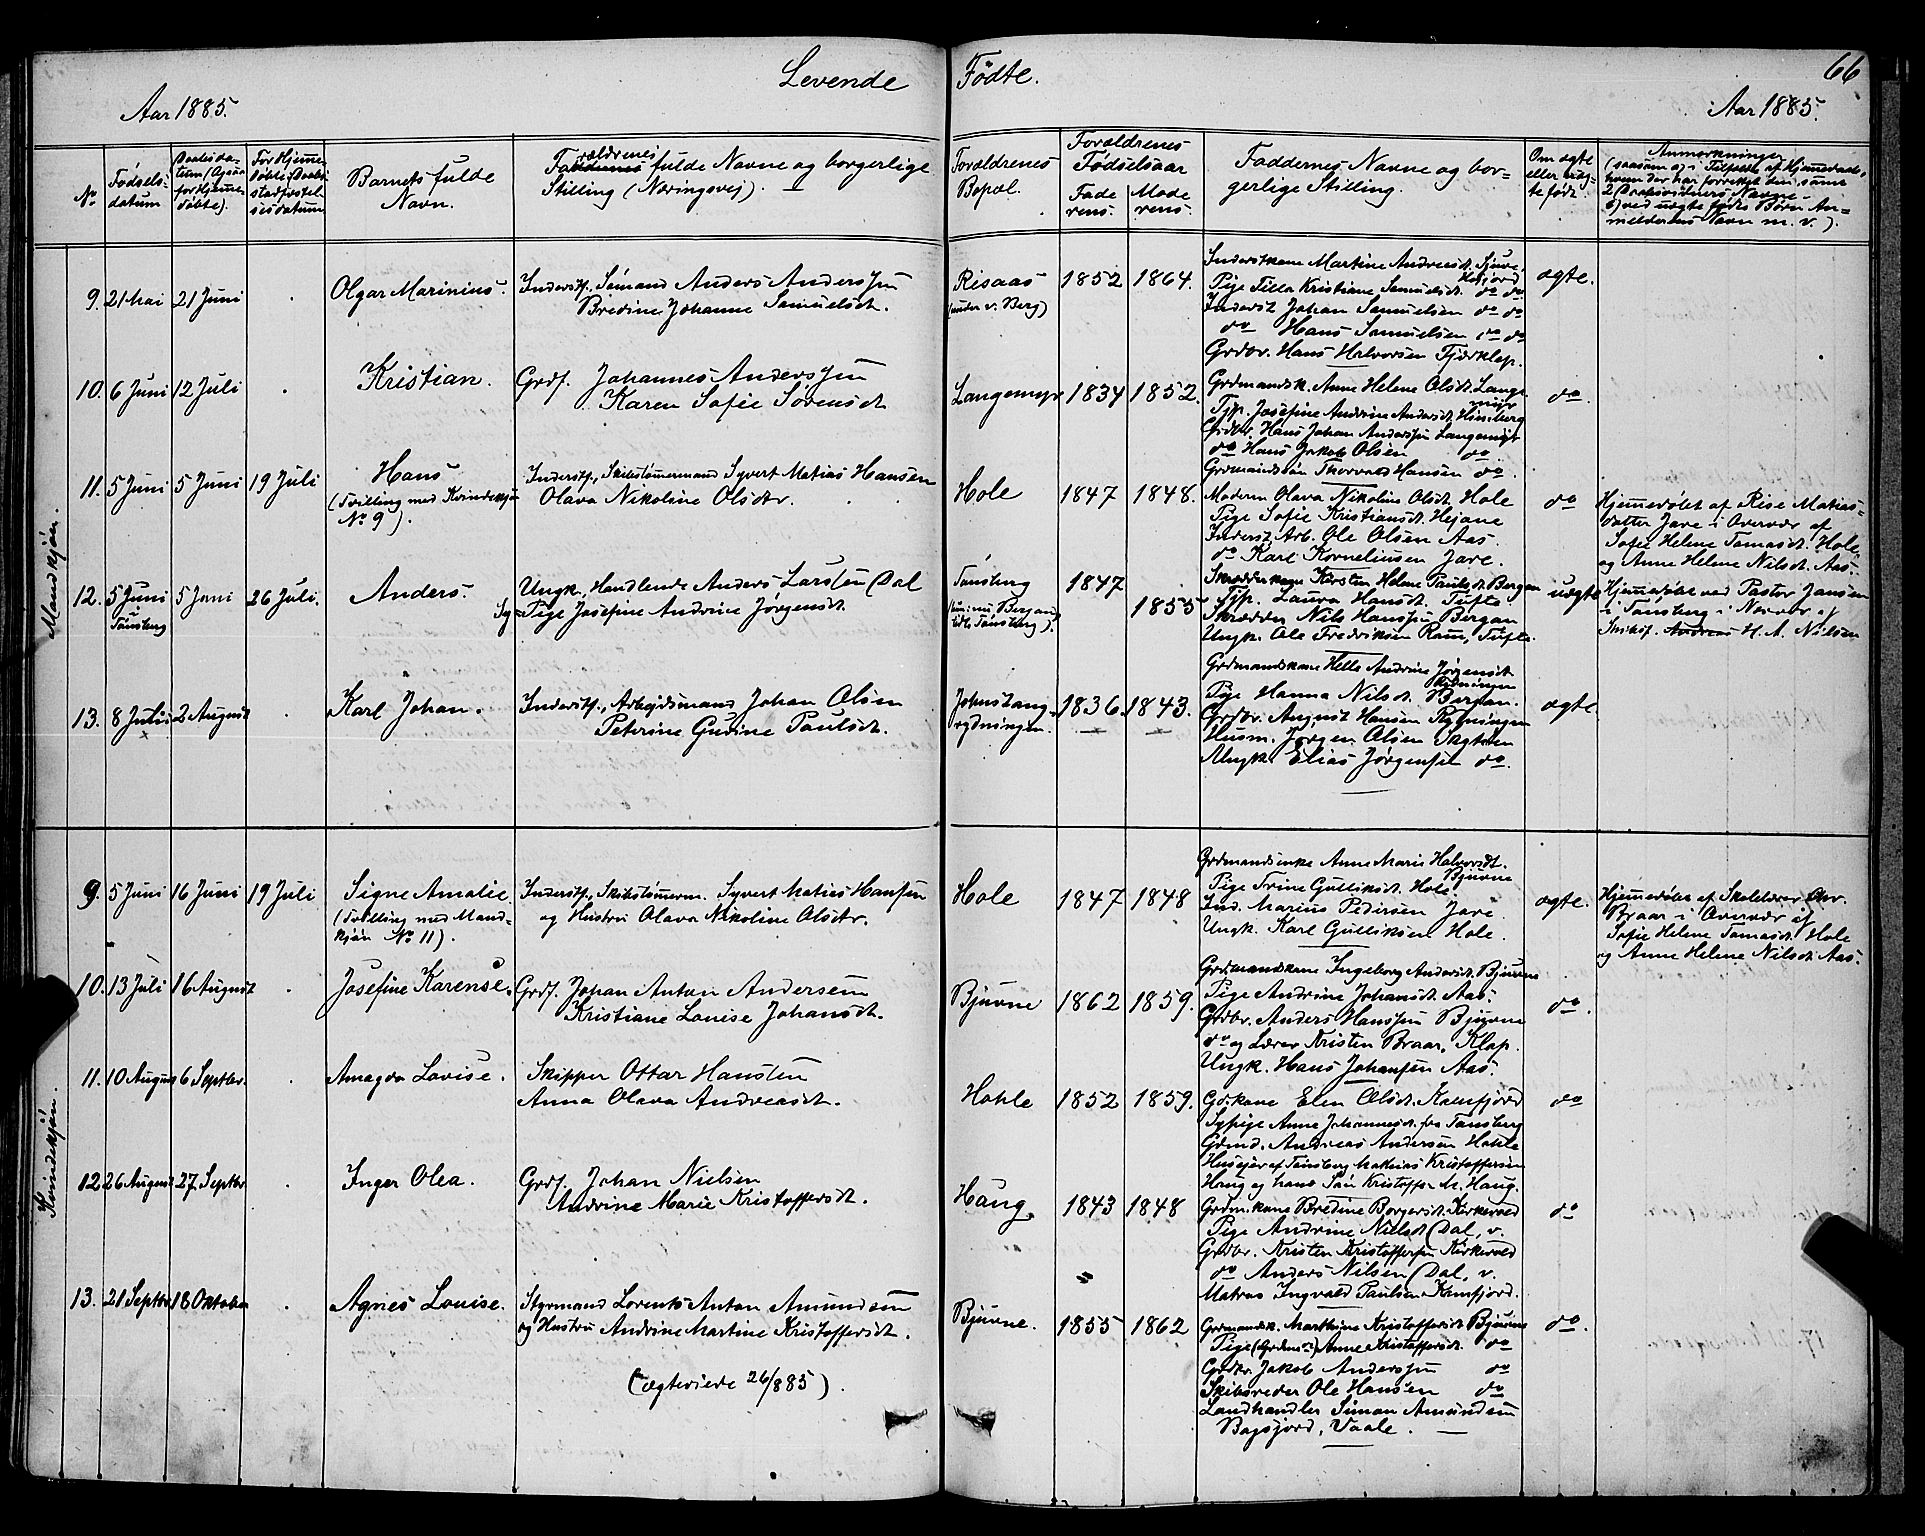 Levende Fødte.
66
Aar 1885.
Aar 1885.
No
Fødsels-
datum
Daabsda-
tum (Ogsaa
for Hjemme-
døbte).
For Hjemme-
døbte: Daabs-
stadfæstel-
sesdatum
Barnets fulde
Navn.
Forældrenes fulde Navne og borgerlige
Stilling (Næringsvej).
Forældrenes
Bopæl.
Forældrenes
Fødselsaar
Fade
rens.
Mode
rens.
Faddernes Navne og bor-
gerlige Stilling.
Om ægte
eller uæg-
te født.
Anmerkninger
Mandkjøn.
9. 21 Mai 21 Juni Olgar Marinius. Inderstf. Sømand Anders Anderssen
Bredine Johanne Samuelsdt.
Risaas 1852 1864.
(under v. Berg)
Inderstkone Martine Andreasdt.
Pige Tilla Kristiane Samuelsdt. do do
Inderst Johan Samuelsen do do
do Hans Samuelsen do do
Grdbr. Hans Halvorsen Fjærklep.
ægte.
10. 6 Juni 12 Juli Kristian. Grdf. Johannes Anderssen
Karen Sofie Sørensdt
Langemyr 1834 1852.
Grdmandsk. Anne Helene Olsdt. Lange
myr
Tjp. Josefine Andrine Andersdt.
Grdbr. Hans Johan Anderssen Langemyr
do Hans Jakob Olsen do
Grdmandssøn Thorvald Hansen do.
do.
11. 5 Juni 5 Juni 19 Juli Hans
(Tvilling med Kvindekjøn
No 9).
Inderstf., Skibstømmermand Syvert Matias Hansen
Olava Nikoline Olsdtr.
Hole 1847 1848.
Moderen Olava Nikoline Olsdt. Hole
Pige Sofie Kristiansdt. Hejane
Inderst Arb. Ole Olsen Aas.
do Karl Kornelinssen Jare.
do
Hjemmedøbt af Rise Matias-
datter Jare i Overvær af
Sofie Helene Tomasdt. Hole
og Anne Helene Nilsdt. Aas.
12. 5 Juni 5 Juni 26 Juli. Anders.
Tønsberg
Ungk., Handlende Anders Larsen Dal
Sy-Pige Josefine Andrine Jørgensdt.
Tønsberg 1847
1855
Skrædderkone Kirsten Helene Paulsdt Bergan
Tjp. Laura Hansdt. Tufte
Skrædder Nils Hanssen Bergan
Ungk. Ole Fredriksen Ram, Tufte.
uægte
Hjemmedøbt ved Pastor Jansen
i Tønsberg i Nærvær af
H. A. Nilsen
13. 8 Juli 2 August Karl Johan. Inderstf., Arbejdsmand Johan Olsen
Peterine Gurine Paulsdt.
Johnstang-
rydningen.
1836. 1843.
Grdmandskone Helle Andrine Jørgensdt
Rydningen
Pige Hanna Nilsdt. Bergan.
Grdbr. August Hansen Rydningen
Husm. Jørgen Olsen
Ungk. Elias Jørgensen do.
ægte
Kvindekjøn.
9. 5 Juni 16 Juni 19 Juli Signe Amalie
(Tvilling med Mand-
kjøn No 11).
Inderstf., Skibstømmerm. Syvert Matias Hansen
og Hustru Olava Nikoline Olsdtr.
Hole 1847 1848
Grdmandsenke Anne Marie Halvorsdt.
Bjuvne
Pige Trine Gulliksdt. Hole.
Ind. Marius Pedersen Jare.
Ungk. Karl Gulliksen Hole.
ægte.
Hjemmedøbt af Skolelærer Chr.
Braar i Overvær af
Sofie Helene Tomasdt. Hole
og Anne Helene Nilsdt. Aas.
10. 13 Juli 16 August Josefine Karense. Grdf. Johan Anton Andersen
Kristiane Louise Johansdt.
Bjuvne 1862 1859.
Grdmandskone Ingeborg Andersdt. Bjuvne
Pige Andrine Johansdt. Aas.
Grdbr. Anders Hanssen Bjuvne
do og Lærer Kristen Braar, Klop.
Ungk. Hans Johanssen Aas.
do.
11. 10 August 6 Septbr. Amagda Lovise. Skipper Ottar Hansten
Anna Olava Andreasdt.
Hotvle 1852 1859.
Gd.kone Elen Olsdt.
Sypige Anne Johannesdt. fra Tønsberg
Grmd. Andreas Andersen
Husejer af Tønsberg Mathias Kristoffersen
Haug og hans Søn Kristoffer M. Haug.
do
12 26 August 27 Septbr Inger Olea. Grdf. Johan Nielsen
Andrine Marie Kristoffersdt.
Haug. 1843 1848
Grdm.kone Bredine Borgersdt. Kirkevold
Pige Andrine Nielsdt Dal, v.
Grdbr. Kristen Kristoffersen Kirkevold
do Anders Nilsen Dal, v.
Matros Ingvald Paulsen
do
13. 21 Septbr 18 Oktober Agnes Louise. Styrmand Lorents Anton Amundsen
og Hustru Andrine Martine Kristoffersdt.
(ægteviede 26/885).
Bjuvne. 1855 1862
Grdmandsk. Marthine Kristoffersdt. Bjuvne
Pige Anne Kristoffersdt. do
Grdbr. Jakob Anderssen do
Skibsreder Ole Hansen do
Landhandler Simon Amundsen
Vaale.
do.